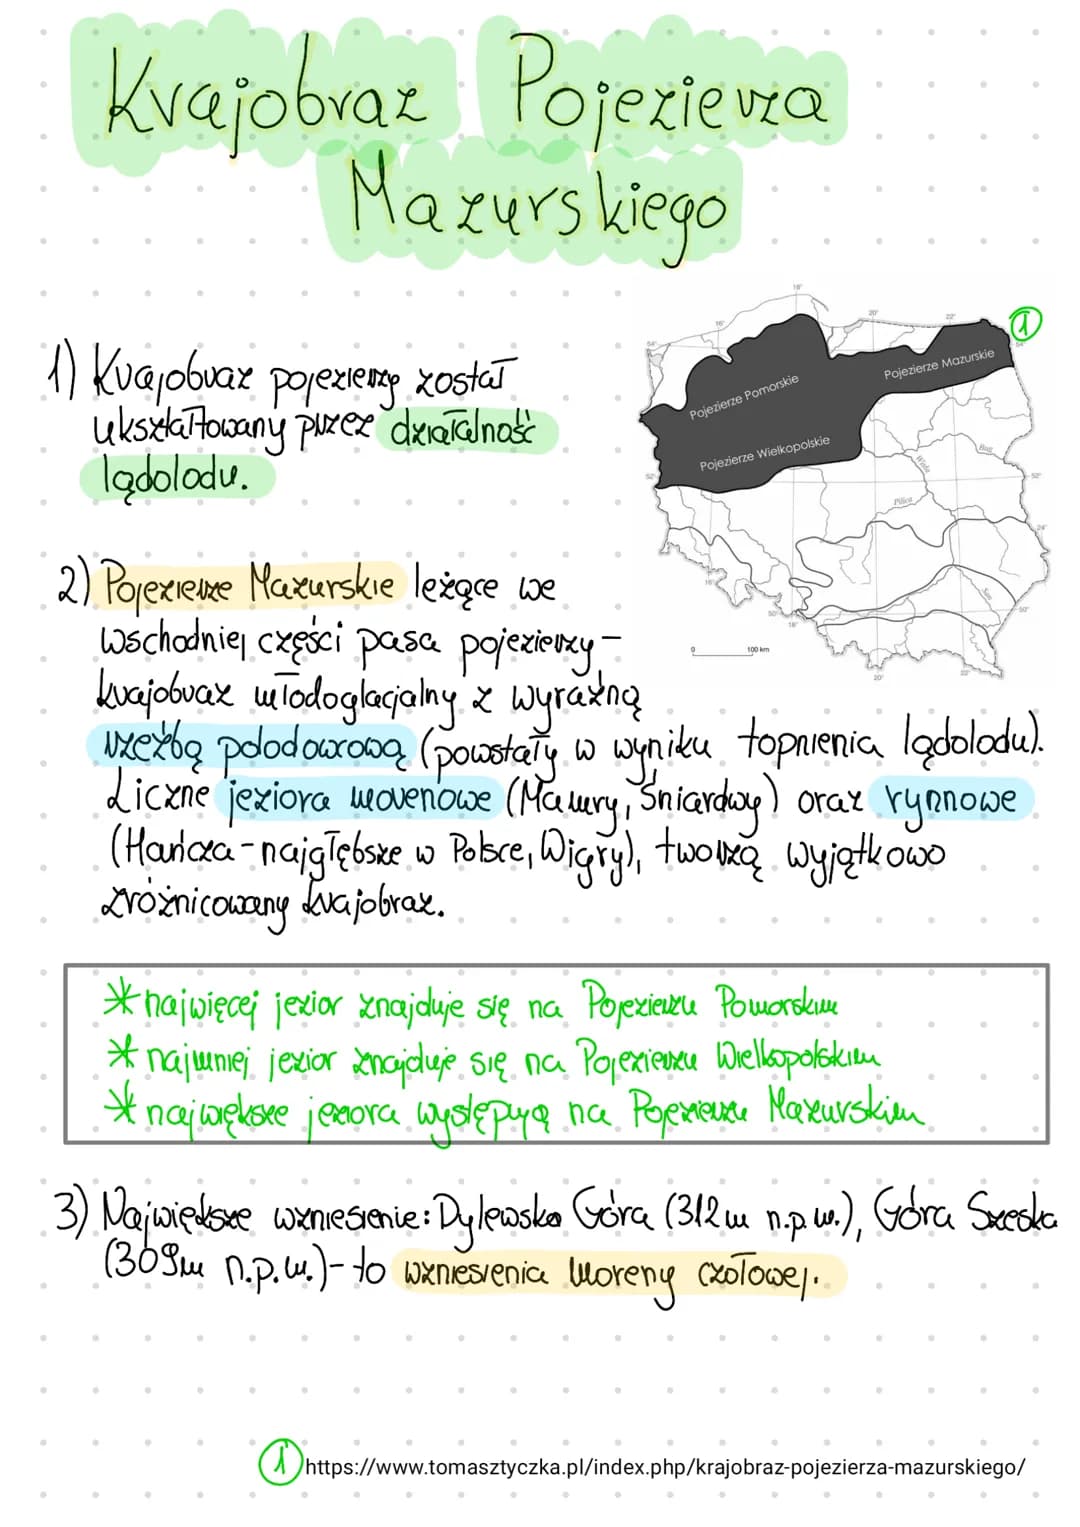 Krajobraz Pojezierza
Mazurskiego
1) Krajobraz pojezierzy został
ukształtowany przez działalność
lądolodu.
18°
16°
20°
22°
54°
54°
1
Pojezierze Mazurskie
Pojezierze Pomorskie
Pojezierze Wielkopolskie
Bug
Wisła
52°
52°
Pilica
24°
16°
San
50°
50°
18°
0
100 km
20°
22°
2) Pojezierze Mazurskie leżące we
wschodniej części pasa pojezierzy-
krajobraz młodoglacjalny z wyraźną
rzeźbą polodowcową (powstały w wyniku topnienia lądolodu).
Liczne jeziora morenowe (Mamry, Śniardwy) oraz rynnowe
(Hańcza-najgłębsze w Polsce, Wigry), tworzą wyjątkowo
zróżnicowany krajobraz.
*najwięcej jezior znajduje się na Pojezierzu Pomorskim
*najmniej jezior znajduje się na Pojezierzu Wielkopolskim
*największe jeziora występują na Pojezierzu Mazurskim
3) Największe wzniesienie: Dylewska Góra (312m n.p.m.), Góra Szeska
(309m n.p.m.)- to wzniesienia moreny czołowej.
1 https://www.tomasztyczka.pl/index.php/krajobraz-pojezierza-mazurskiego/